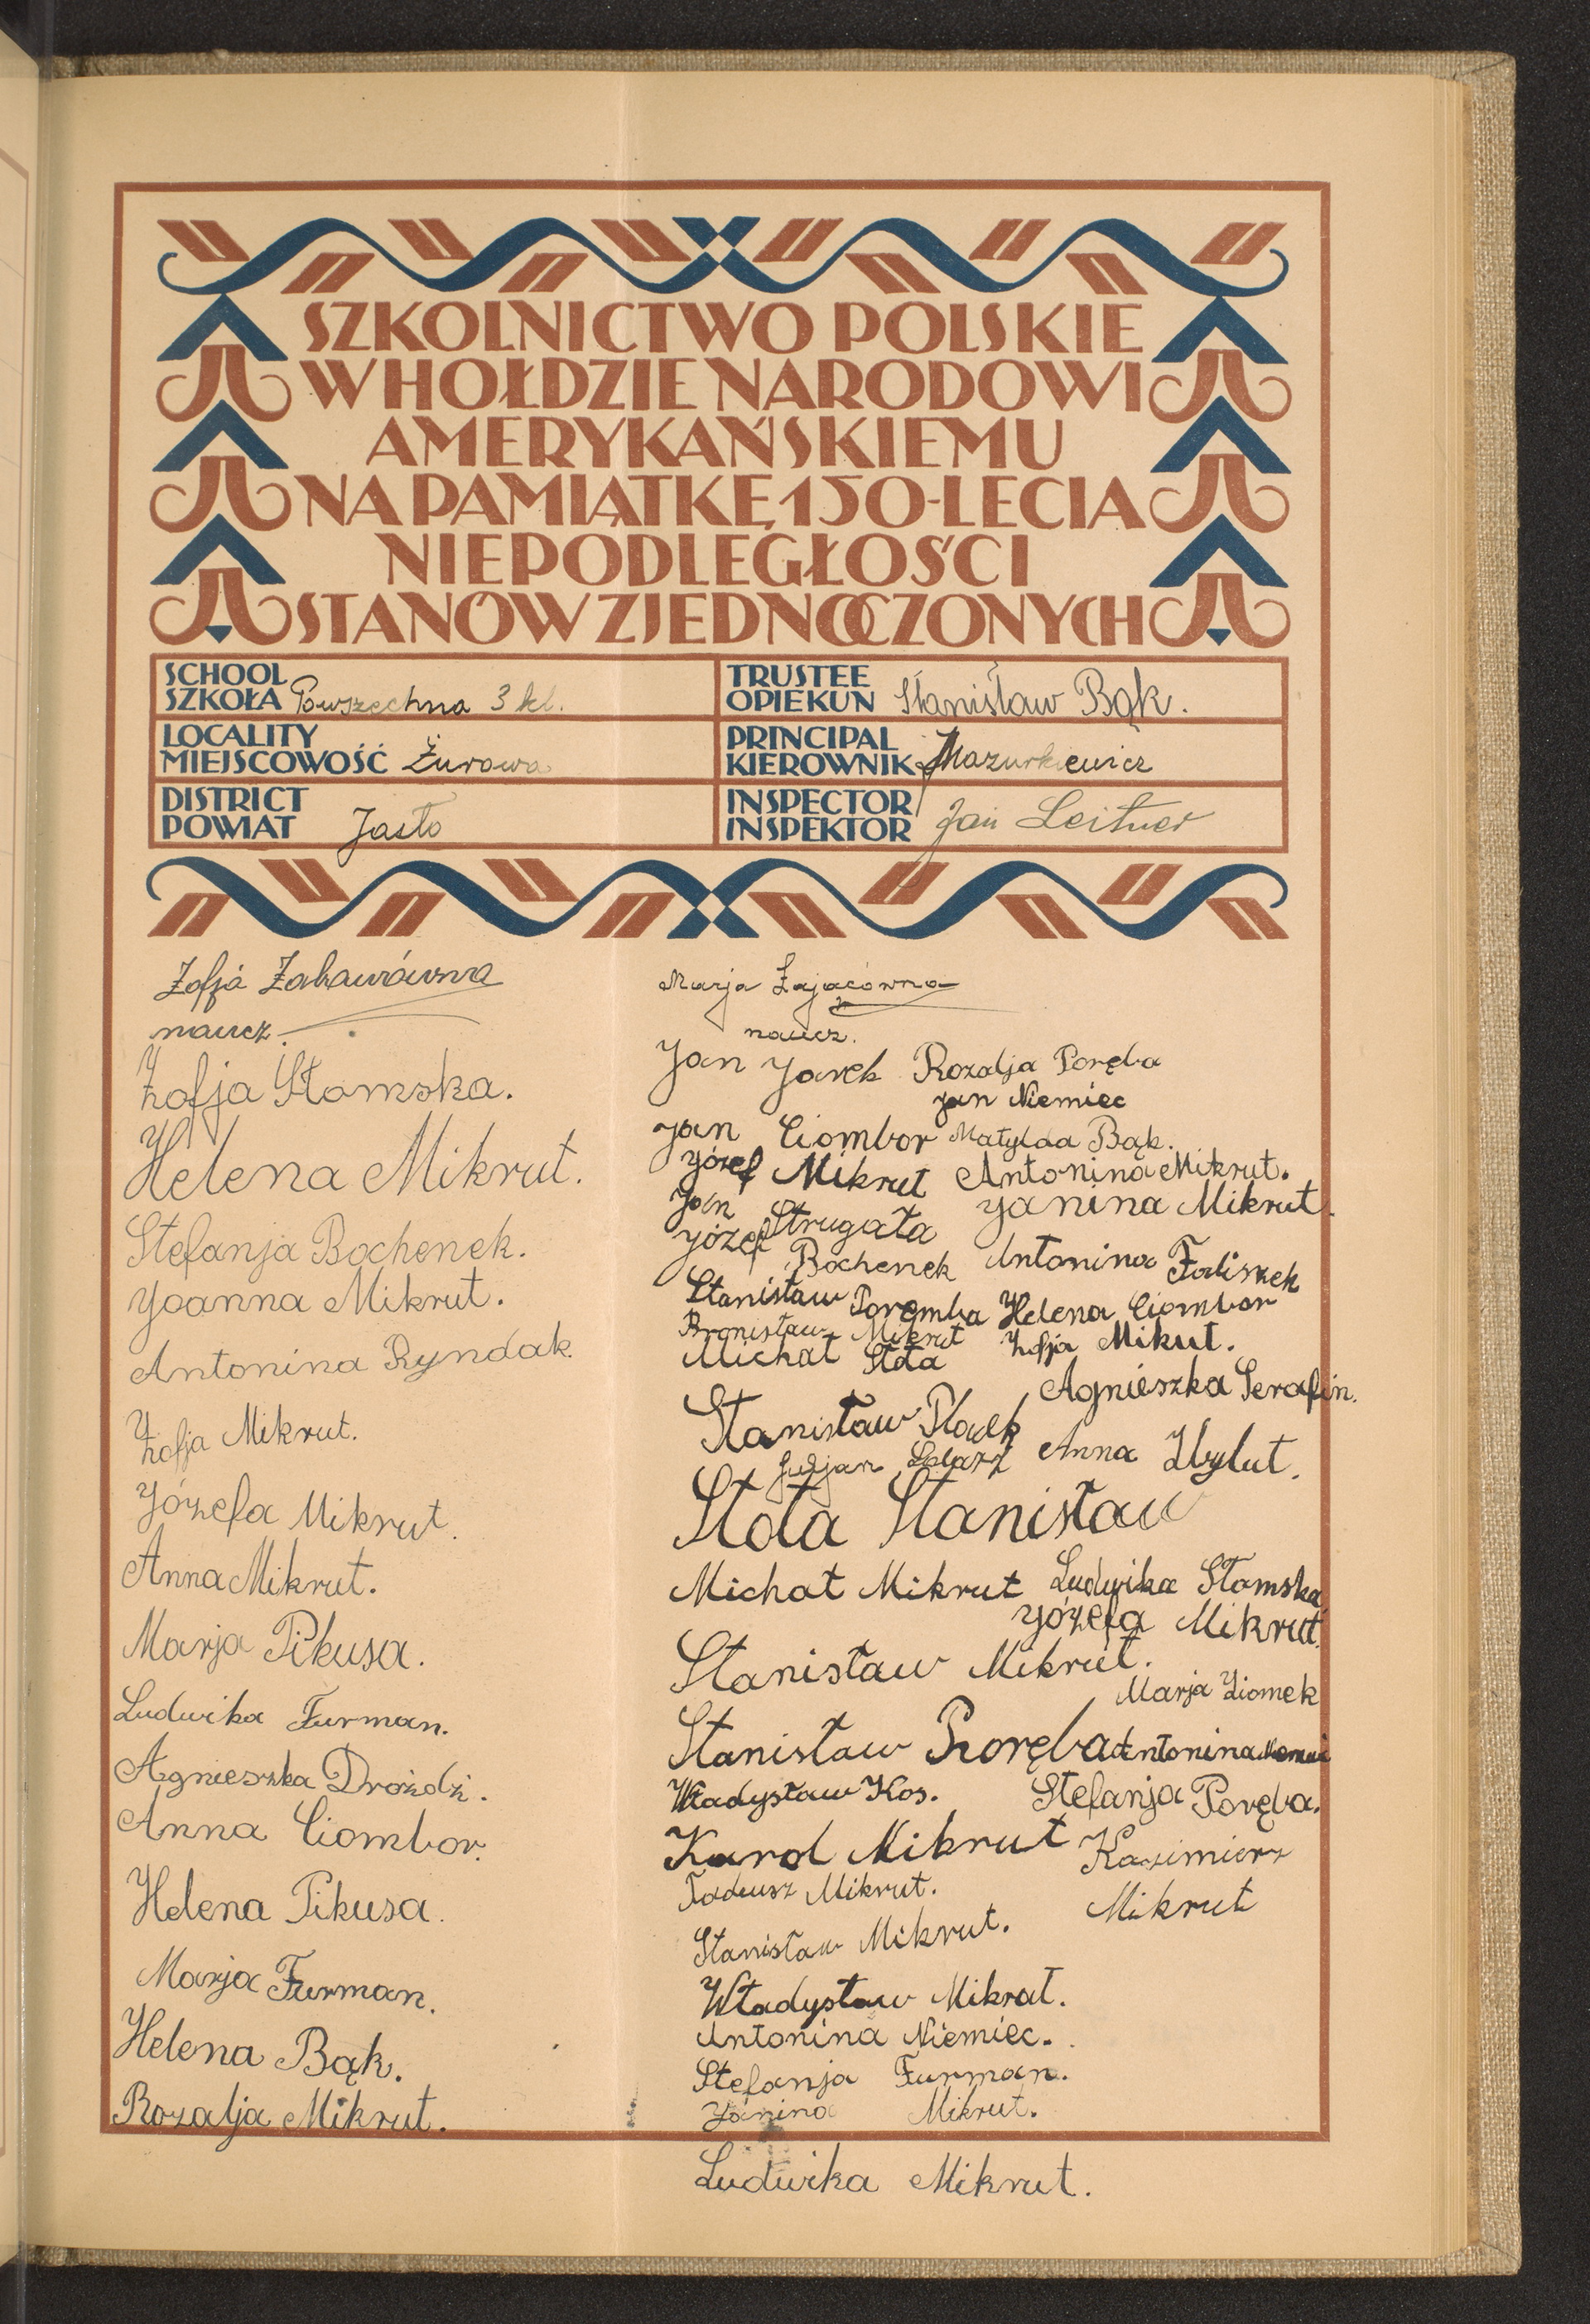 SZKOLNICTWO POLSKIE
W HOŁDZIE NARODOWI
AMERYKAŃSKIEMU
NA PAMIĄTKĘ 150-LECIA
NIEPODLEGŁOŚCI
STANÓW ZJEDNOCZONYCH
SCHOOL
SZKOŁA Powszechna 3 kl.
TRUSTEE
OPIEKUN Stanisław Bąk.
LOCALITY
MIEJSCOWOŚĆ Żurowa
PRINCIPAL
KIEROWNIK Mazurkiewicz
DISTRICT
POWIAT Jasło
INSPECTOR
INSPEKTOR Jan Leitner
Zofja Zabawówna
naucz.
Zofja Słomska.
Helena Mikrut.
Stefanja Bochenek.
Joanna Mikrut.
Antonina Ryndak.
Zofja Mikrut.
Józefa Mikrut.
Anna Mikrut.
Marja Pikusa.
Ludwika Furman.
Agnieszka Drożdż.
Anna Ciombor.
Helena Pikusa.
Marja Furman.
Helena Bąk.
Rozalja Mikrut.
Marja Zającówna
naucz.
Jan Jarek Rozalja Poręba
Jan Niemiec
Jan Ciombor Matylda Bąk.
Józef Mikrut Antonina Mikrut.
Jan Strugała Janina Mikrut.
Józef Bochenek Antonina Faliszek
Stanisław Poremba Helena Ciombor
Bronisław Mikrut Zofja Mikut.
Michał Stóła
Agnieszka Serafin.
Stanisław
Juljan Anna Zbylut.
Stóła Stanisław
Michał Mikrut Ludwika Słomska
Józefa Mikrut.
Stanisław Mikrut.
Marja Ziomek
Stanisław Poręba Antonina
Władysław Kos. Stefanja Poręba.
Karol Mikrut Kazimierz
Tadeusz Mikrut. Mikrut
Stanisław Mikrut.
Władysław Mikrut.
Antonina Niemiec.
Stefanja Furman.
Janina Mikrut.
Ludwika Mikrut.